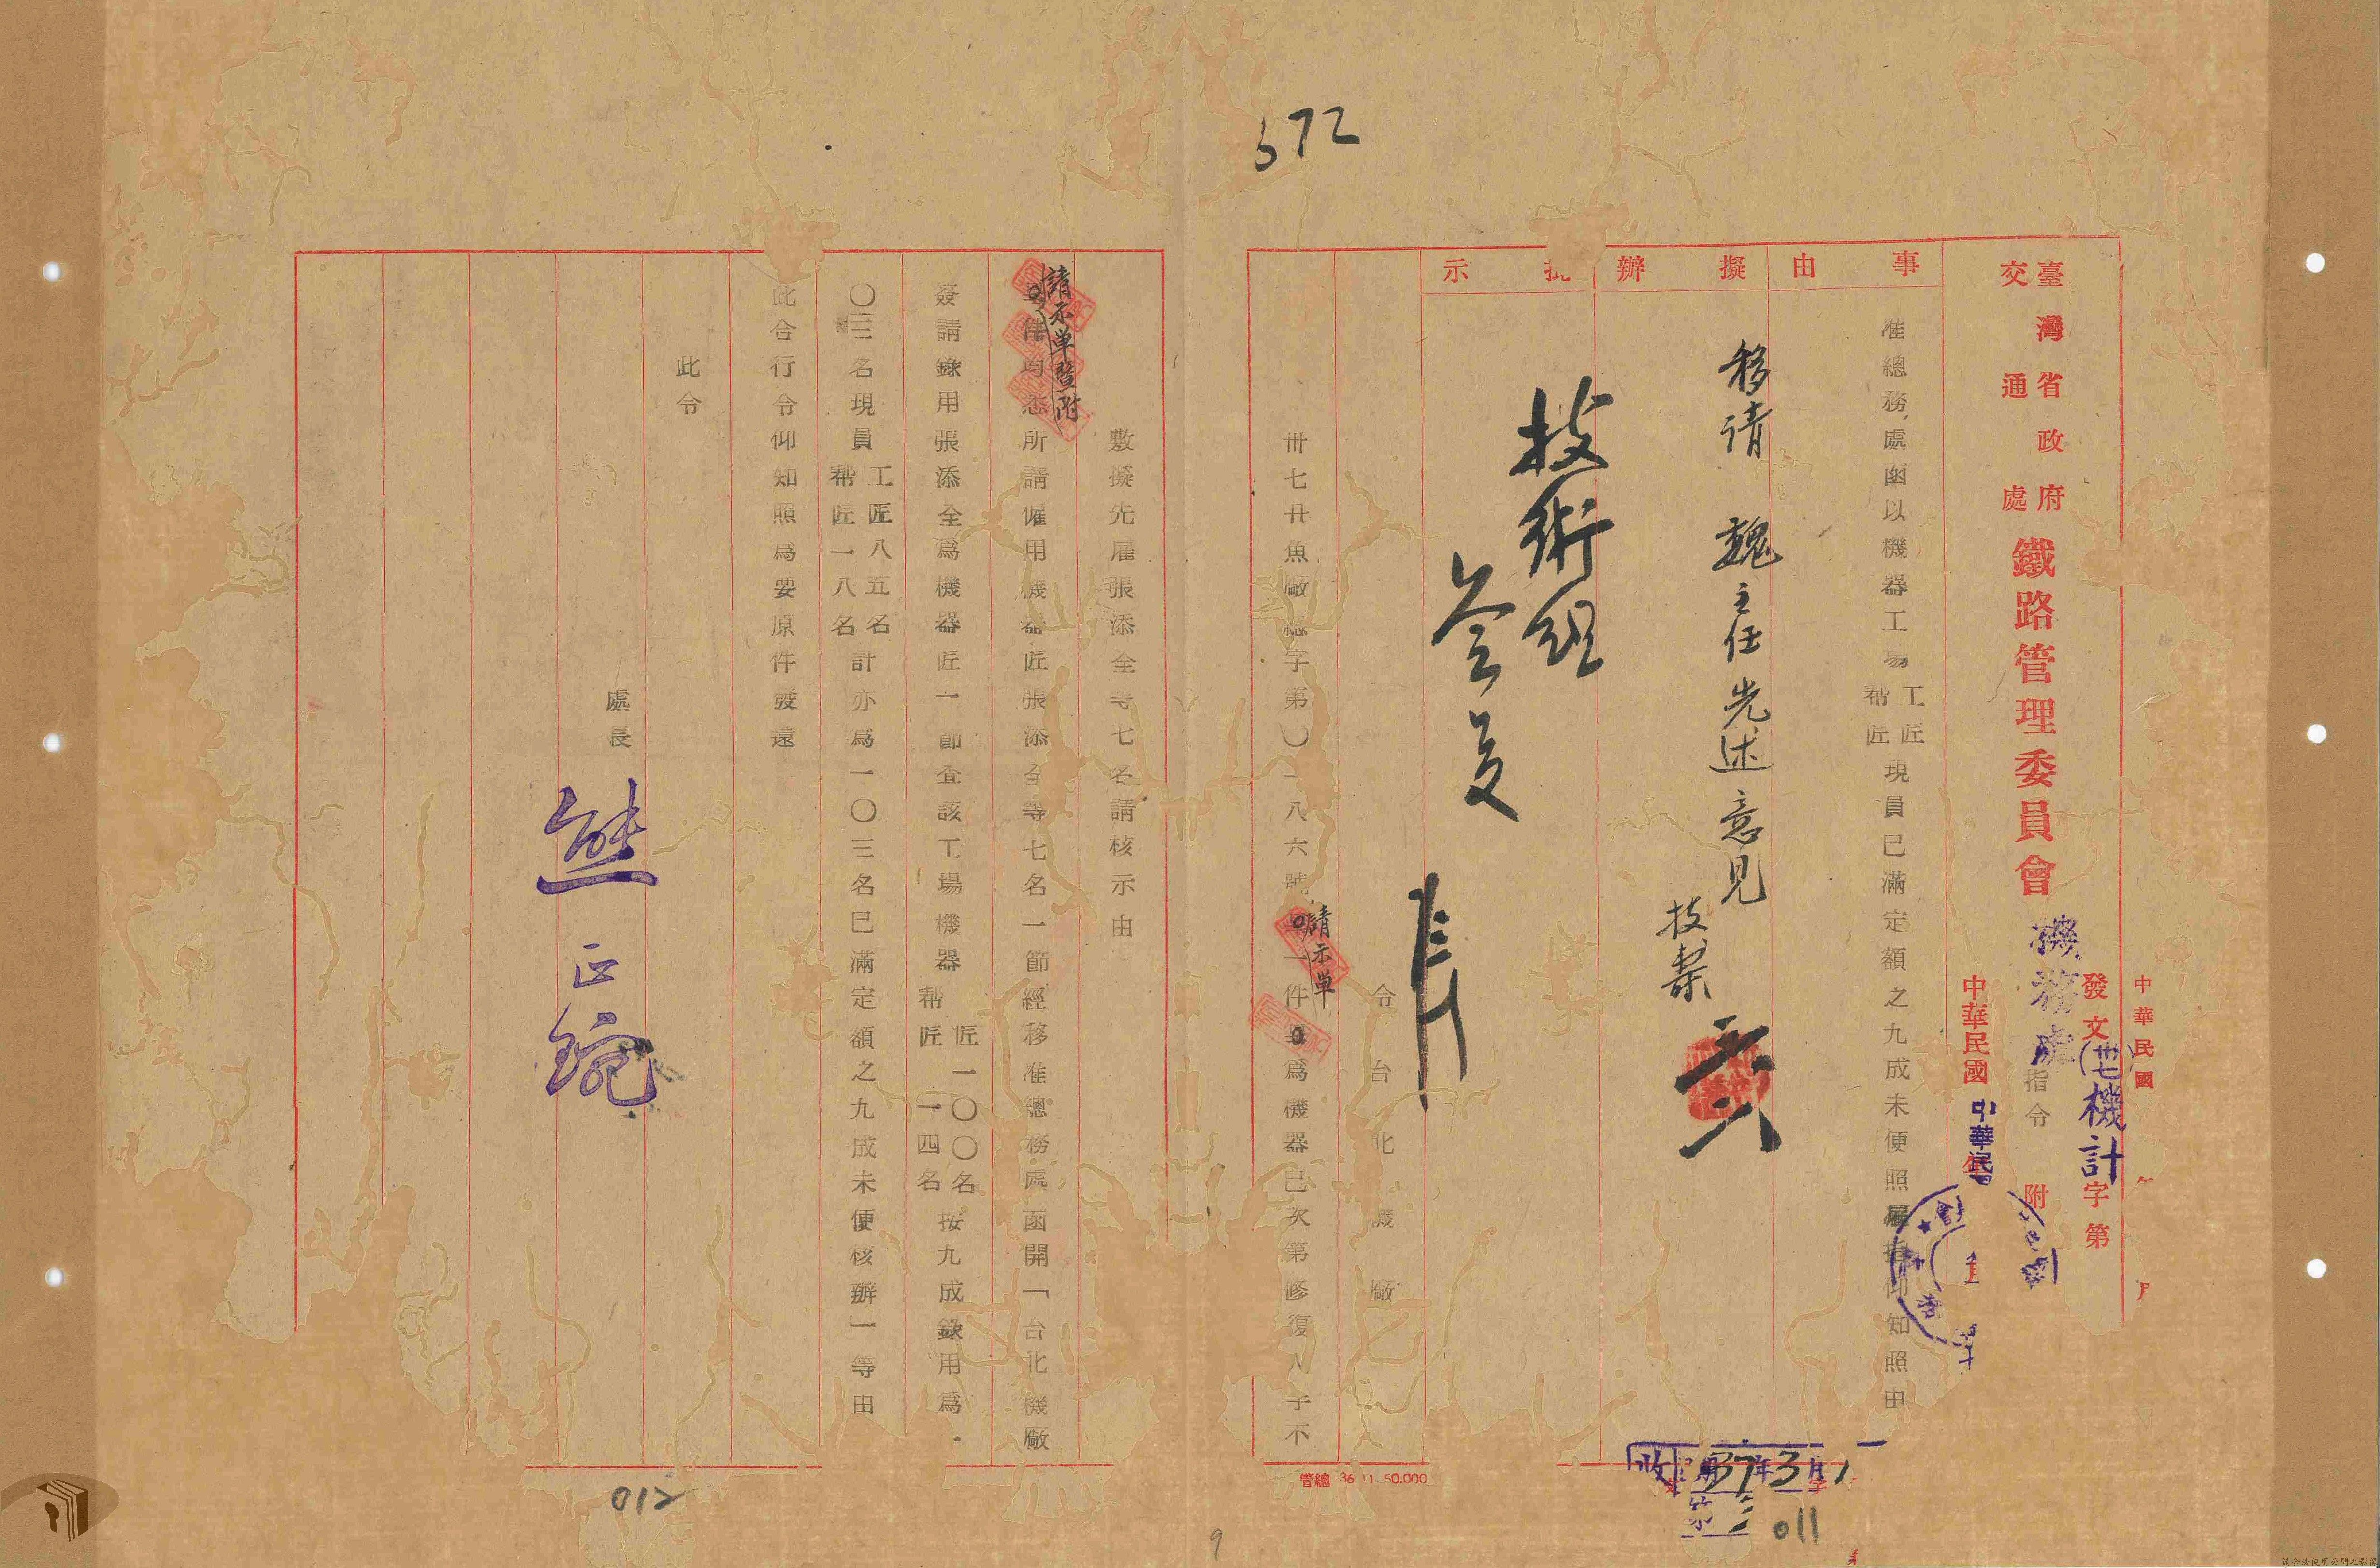 672
臺灣省政府
交通處
鐵路管理委員會
機務處
指令
中華民國
發文(卅七)機計字第
附
中華民國
中華民
事由
擬辦
批示
准總務處函以機器工場工匠帮匠現員已滿定額之九成未便照雇指仰知照由
移请 魏主任先述意見
技栞
技術組
令台北機廠
卅七廿魚廠總字第〇一八六號請示单一件為機器已次第修復人手不
敷擬先雇張添全等七名請核示由
請示单暨附件均悉所請僱用機器匠張添全等七名一節經移准總務處函開「台北機廠
簽請錄用張添全為機器匠一節查該工場機器匠一〇〇名帮匠一四名按九成錄用為一
〇三名現員工匠八五名帮匠一八名計亦為一〇三名已滿定額之九成未便核辦」等由
此合行令仰知照為要原件發還
此令
處長
熊正琬
管總 36.11.50.000
收 37年3月
第
011
012
9